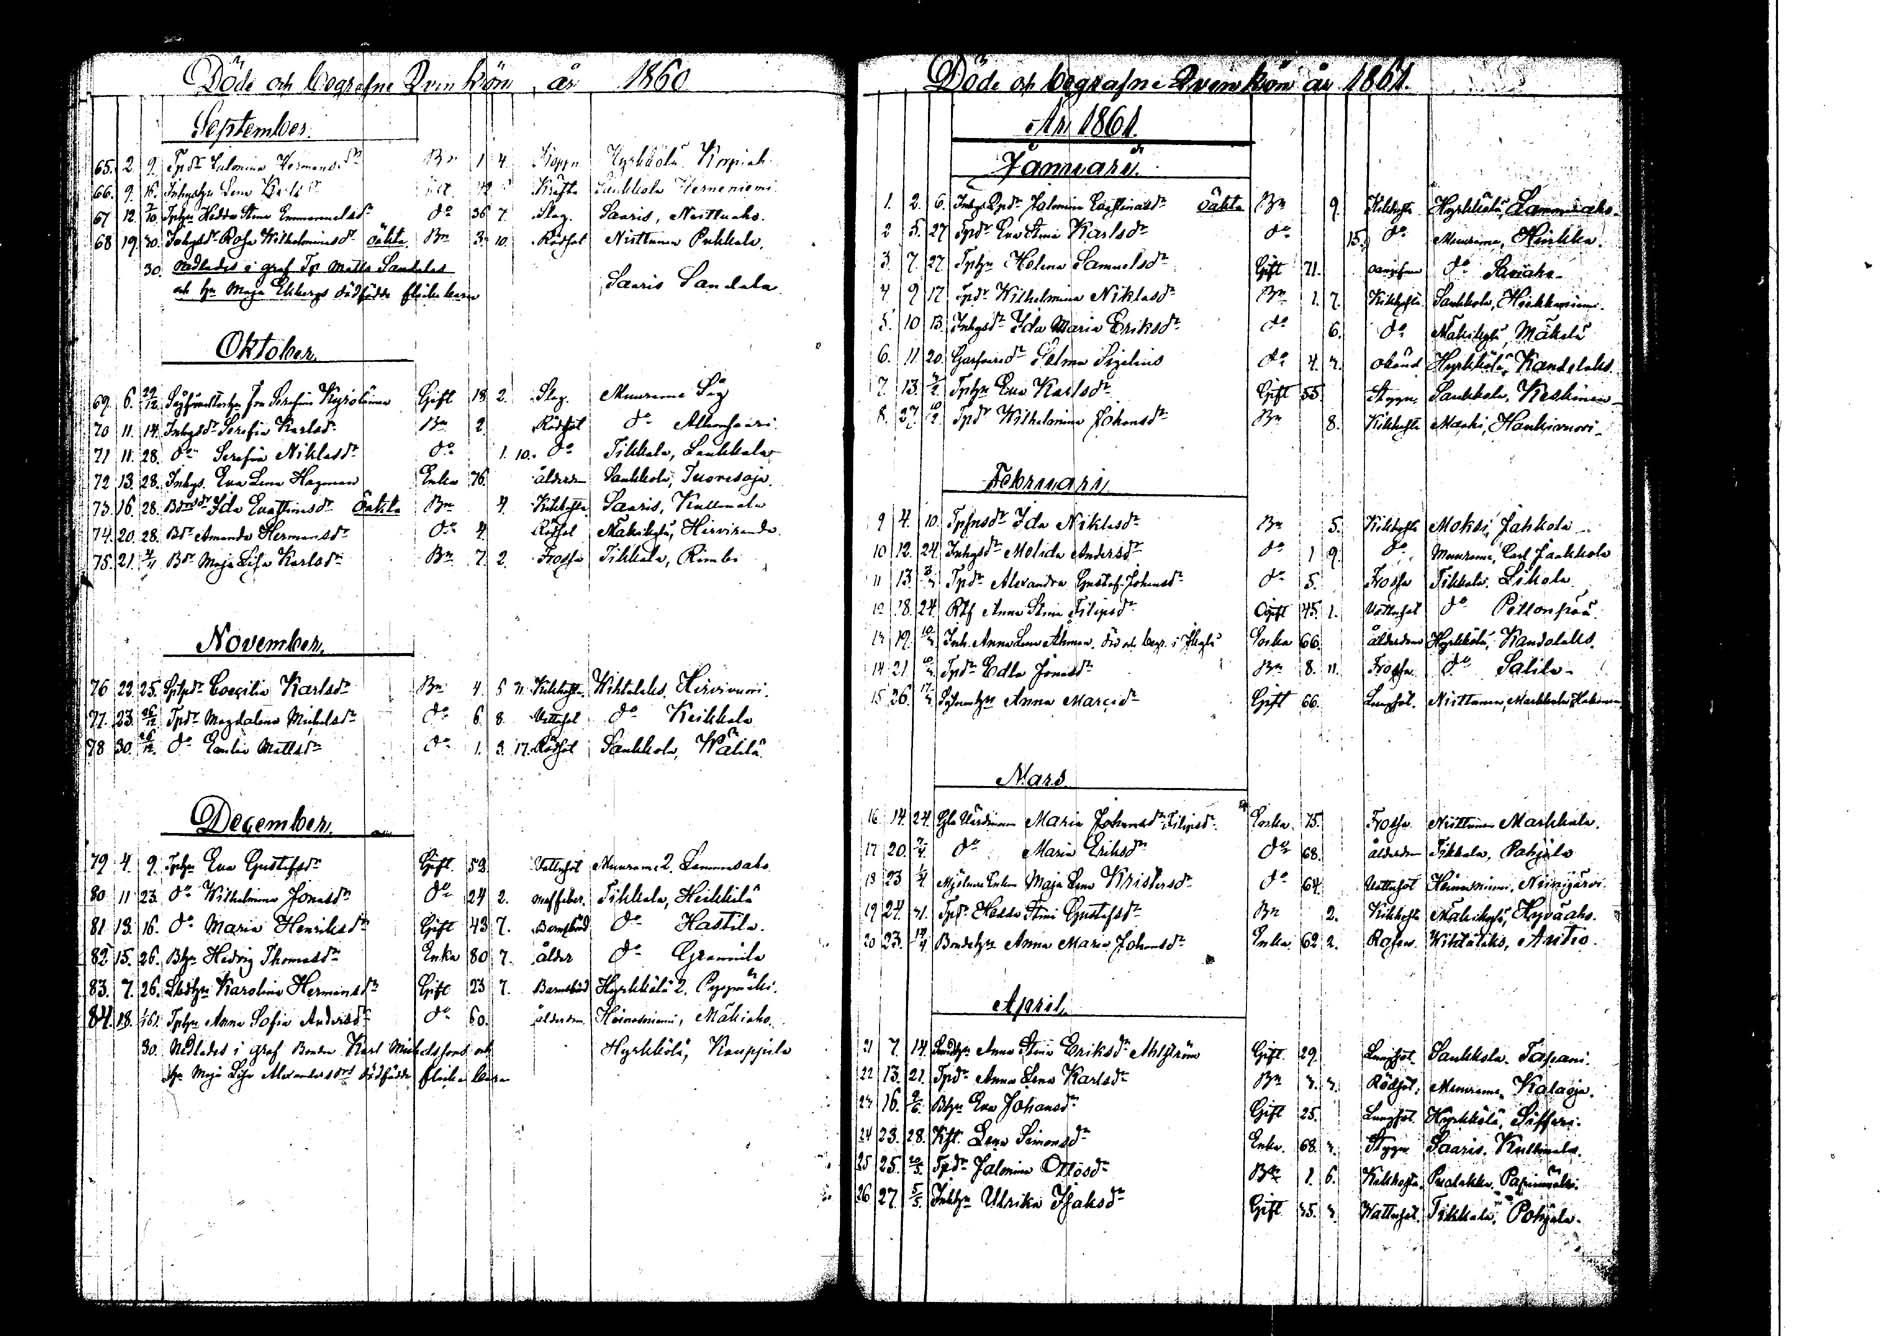 Döde och begrafne Qvinkön år 1860
September.
65. 2. 9. Tpdr Salomina Hermansdr Bn 1 4. Koppr Hyrkkölä Korpiak
66. 9. 16. Inhgshu Lena Gift 42 Kräfta Saukkola Herneniemi
67 12. 7/10 Tphu Hedda Stina Emmanuelsdr do 36 7. Slag. Saaris, Niittuaho.
68 19. 30. Inhgsdr Rosa Wilhelminasdr Oäkta Bn 3 10. Rödsot Niittumaa Pukkala.
30. Nedlades i graf Tp Matts Sandelas
och hu Maja Ekbergs dödfödda flickebarn Saaris Sandala
Oktober.
69. 6. 22/12 fru Serafina Kyrolänen Gift 18 2. Slag. Muurame Såg
70 11. 14. Inhgsdr Serafia Karlsdr Bn 2. Rödsot do Alkunsaari
71 11. 28. do Serafia Niklasdr do 1. 10. do Tikkala, Laukkala
72 13. 28. Inhgs. Eva Lena Hagman Enka 76. ålderdom Saukkola, Tuoresoja.
73. 16. 28. Bdrsdr Ida Evastinasdr Oäkta Bn 4. Kikhosta Saaris, Kullmala
74. 20. 28. Bdr Amanda Hermansdr do 4 Rödsot Mäkikylä, Hirviranda
75. 21. 4/11 Bdr Maja Lisa Karlsdr Bn 7 2. Frossa Tikkala, Rimbi
November.
76 22. 25. Spdr Coecilia Karlsdr Bn 4. 5 21. Kikhosta. Wihtalaks, Hirvivuori.
77. 23. 26/12 Tpdr Magdalena Mickelsdr do 6 8. Vattusot do Keikkala
78 30. 26/12 do Emilia Mattsdr do 1. 3. 17. Rödsot Saukkola, Wälilä
December.
79 4. 9. Tphu Eva Gustafsdr Gift 52. Vattusot Muurame 2. Lammasaho
80 11 23. do Wilhelmina Jonasdr do 24 2. Tikkala, Heikkilä
81 13. 16. do Maria Henriksdr Gift 43 7. Barnsbörd do Hastila.
82. 15. 26. Bhu Hedvig Thomasdr Enka 80 7. ålder do Grannila
83. 7. 26. Karolina Hermansdr Gift 23 7. Barnsbörd Hyrkkölä 2. Pyypmäki.
84. 18. 1/1 61. Tphu Anna Sofia Andersdr do 60. ålderdom Heinosniemi, Mäkiaho
30. Nedlades i graf Bonden Karl Mickelssons och
hu Maja Lisa Alexandersdrs dödfödda flicka barn Hyrkkölä, Kauppila
Döde och begrafne Qvinnkön år 1861.
År 1861.
Januari.
1. 2. 6. Inhgs Tpdr Jalmina Oäkta Bn 9. Kikhosta Hyrkkölä Lammasaho.
2 5. 27 Tpdr Eva Stina Karlsdr do 15. do Muurame, Heikka.
3. 7. 27 Tphu Helena Samuelsdr Gift 71. do Saviaho.
4 9 17 Tpdr Wilhelmina Niklasdr Bn 1. 7. Kikhosta Saukkola, Heikkaniemi.
5. 10 13. Inhgsdr Ida Maria Eriksdr do 6. do Mäkikylä, Mäkelä
6. 11 20. Garfvaredr Selma Sigelius do 4. 3. okänd Hyrkkölä, Kandolaks.
7. 13. 3/2 Tphu Eva Karlsdr Gift 55. Stygn. Saukkola, Keskinen
8. 27 10/2 Tpdr Wilhelmina Johansdr Bn 8. Kikhosta Maski, Haukivuori.
Februari
9 4. 10. Ida Niklasdr Bn 5. Kikhosta Moksi, Jahkola
10 12. 24 Inhgsdr Melida Andersdr do 1 9. do Muurame, Carl Jaakkola
11 13 3/3 Tpdr Alexandra Gustaf-Johansdr do 5. Frossa Tikkala. Lihola
12 18. 24 Anna Stina Filipsdr Ogift 45 1. Vattusot do Pellonpää
13 19. 10/3 Inh. Anna Lena Åhman. död och begr. i Enka 66. ålderdom Hyrkkölä, Kandolaks.
14 21 10/3 Tpdr Edla Jonasdr Bn 8. 11. Frossa do Salila.
15 26. 17/3 Anna Marcidr Gift 66. Lungsot. Niittumaa, Markkula Hakonen
Mars
16 14. 24 Maria Johansdr Filipsdr Enka 75. Frossa Niittumaa Markkula.
17 20. 7/4. do Maria Eriksdr do 68. ålderdom Tikkala, Pohjola
18 23 1/4. Enkan Maja Lena Kristersdr do 64. Vattusot Heinosniemi, Niinijärvi
19 24. 31. Tpdr Hedda Stina Gustafsdr Bn 2. Kikhosta Mäkikylä, Hyväaho.
20 23. 14/4 Bondehu Anna Maria Johansdr Enka 62 2. Rosen. Wihtalaks, Antio.
April.
21 7. 14. Anna Stina Eriksdr Ahlström Gift 29. Lungsot. Saukkola. Tapani.
22 13. 21. Tpdr Anna Lena Karlsdr Bn 3. 3. Rödsot, Muurame. Kalaoja.
23 16. 9/5. Bhu Eva Johansdr Gift 25. Lungsot Hyrkkölä, Sifferi.
24 23. 28. Lena Simonsdr Enka. 68. 3. Stygn Saaris. Kullmala.
25 25. 20/5. Tpdr Jalmina Ottosdr Bn 1. 6. Kikhosta, Puolakka, Papinmäki.
26 27. 5/5. Inhhu Ulrika Isaksdr Gift 35. 3. Wattusot. Tikkala, Pohjola.